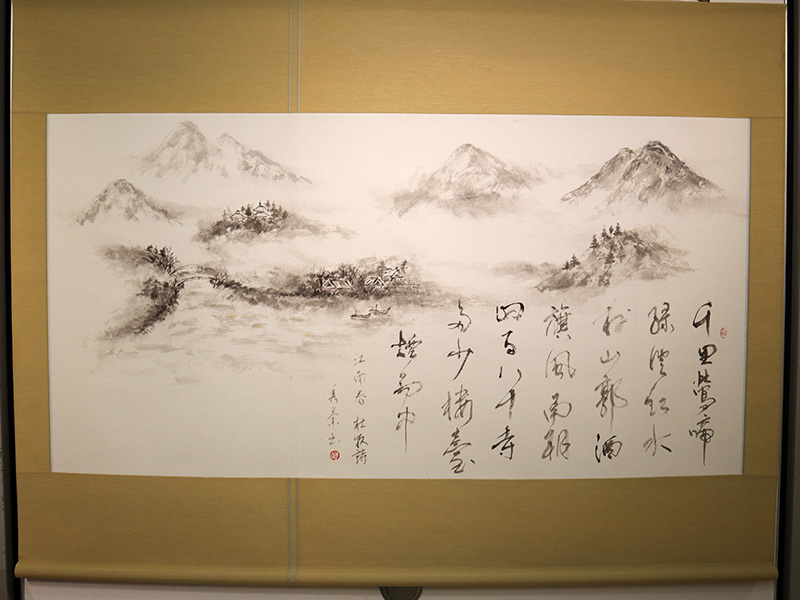 千里鶯啼
綠映紅水
村山郭酒
旗風南朝
四百八十寺
多少樓臺
煙雨中
江南春 杜牧詩